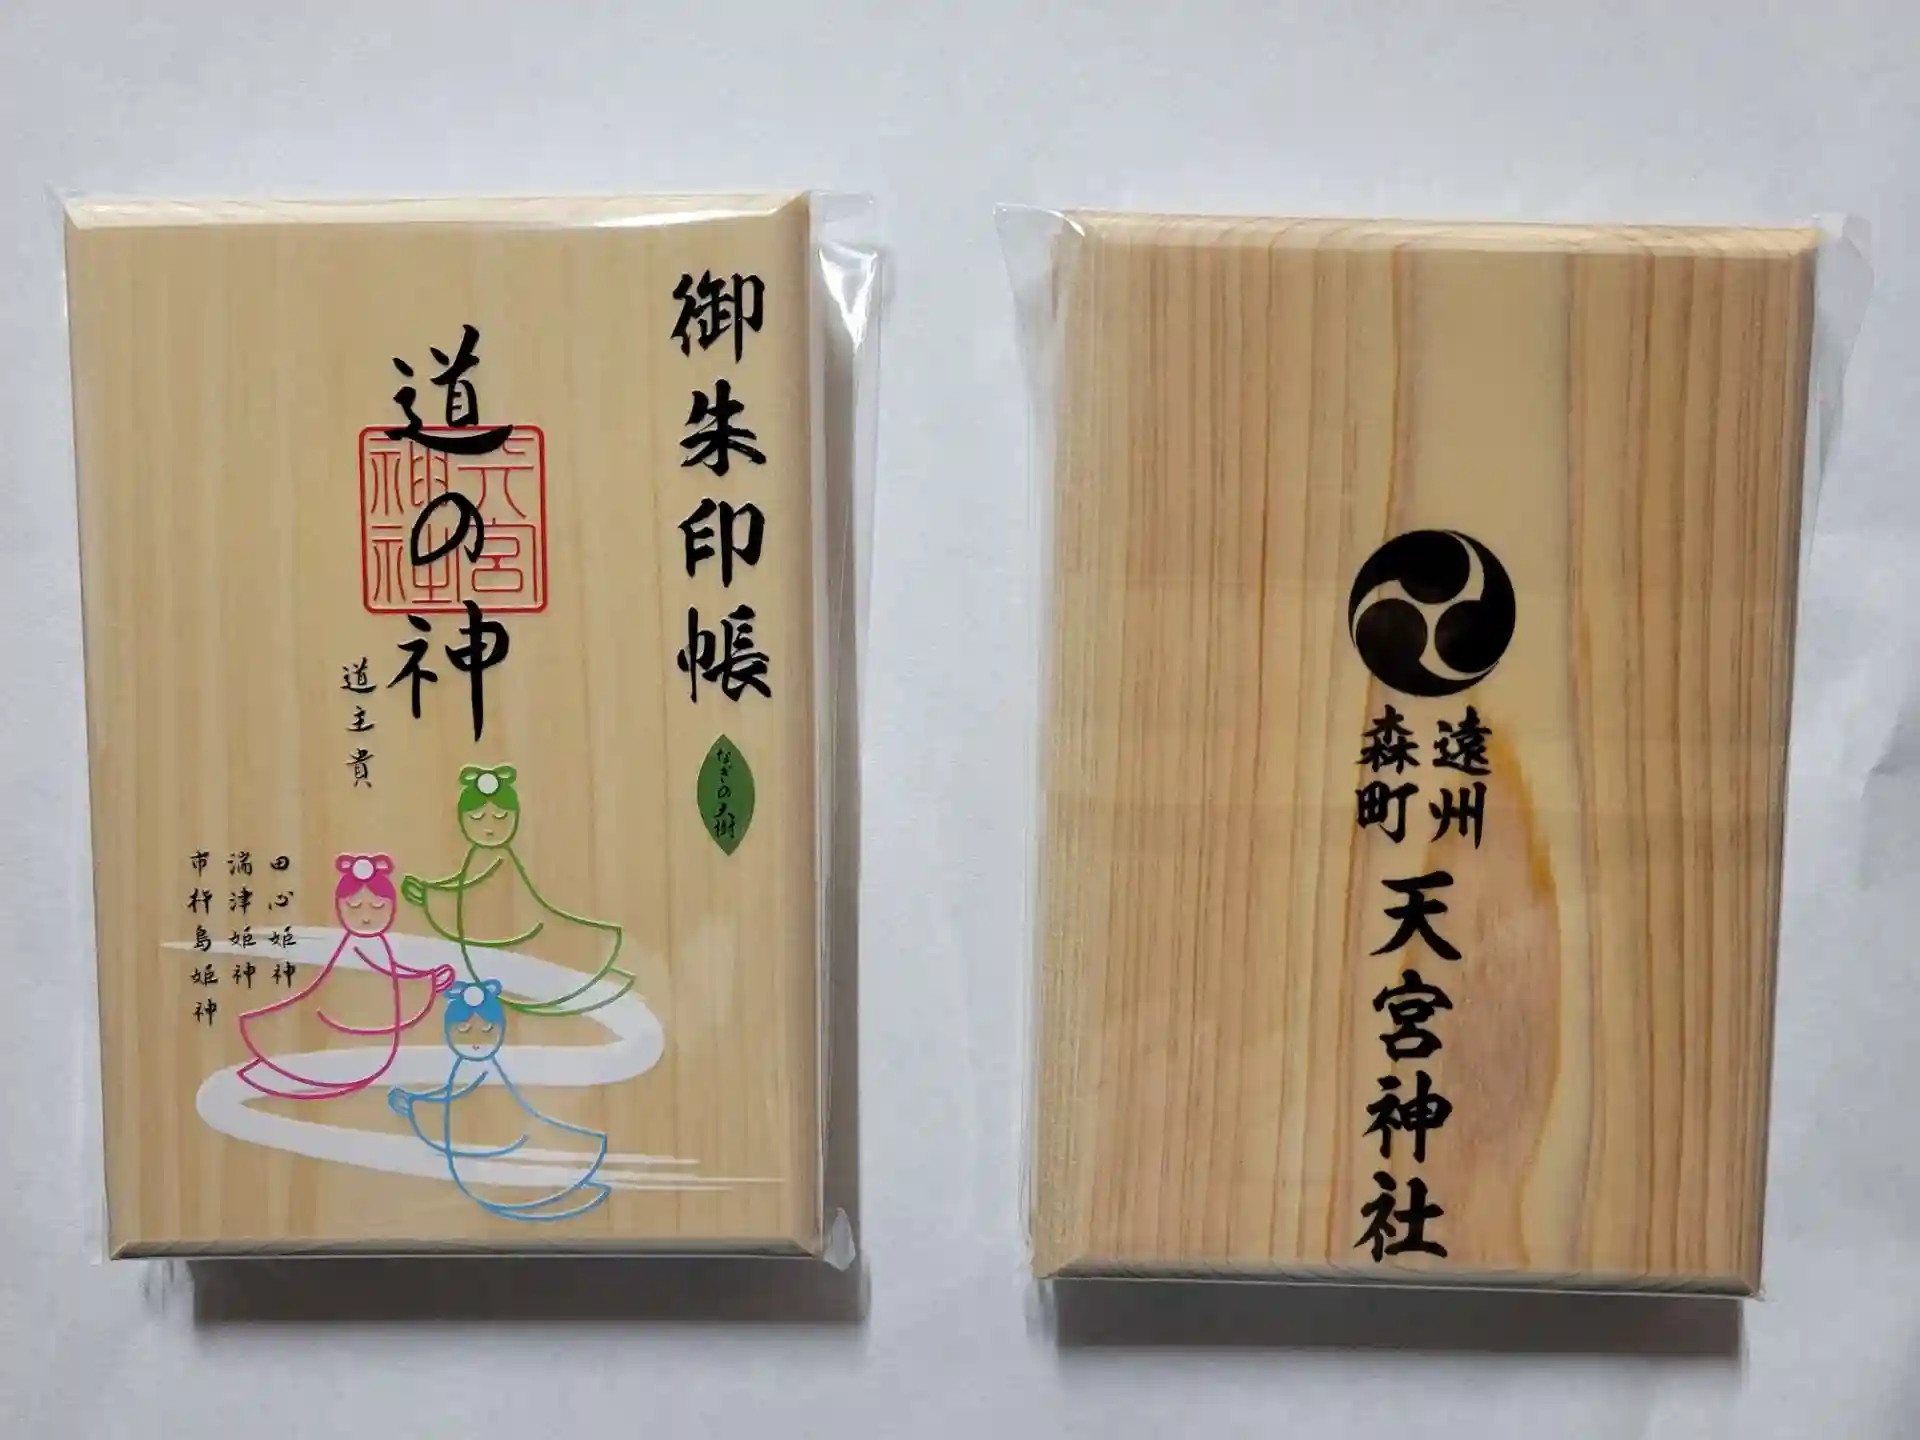 御朱印帳
なぎの大樹
道の神
天宮
神社
道主貴
田心姫神
湍津姫神
市杵島姫神
遠州
森町
天宮神社